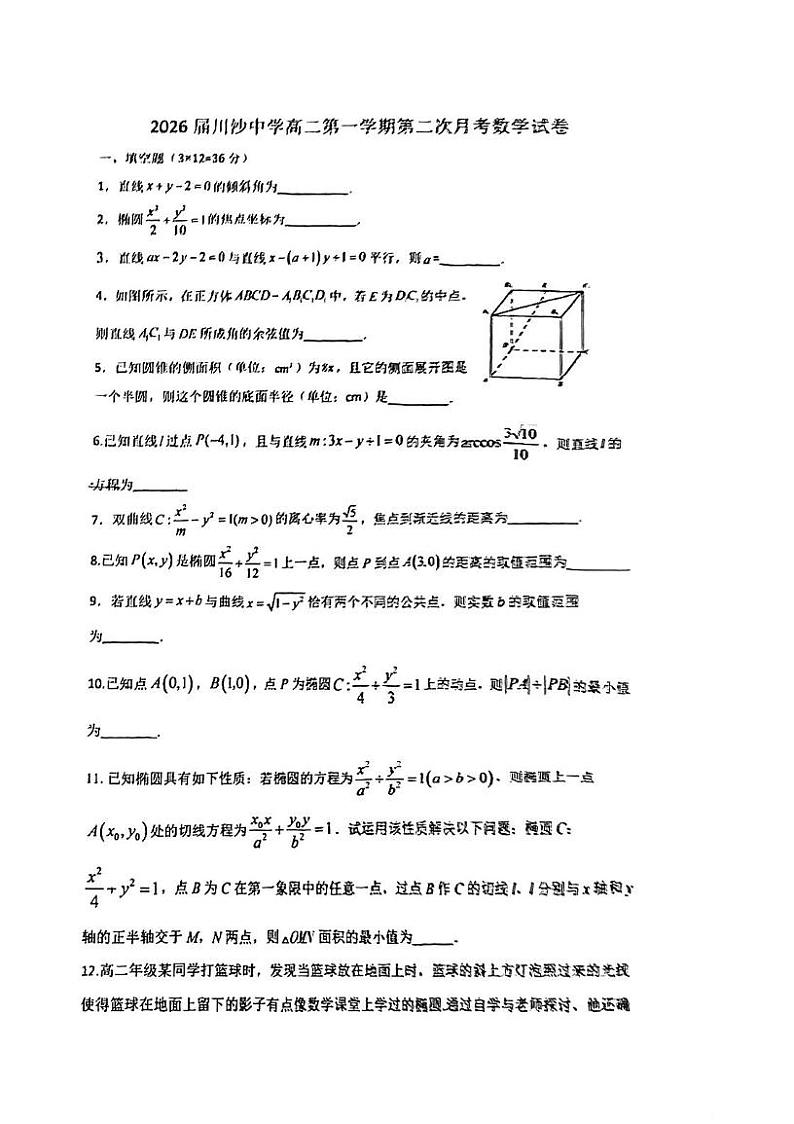 2026届川沙中学高二第一学期第二次月考数学试卷
一、填空题（3*12=36分）
1，直线 x + y - 2 = 0 的倾斜角为________.
2，椭圆 x²/2 + y²/10 = 1 的焦点坐标为________.
3，直线 ax - 2y - 2 = 0 与直线 x - (a + 1)y + 1 = 0 平行，则 a = ________.
4，如图所示，在正方体 ABCD - A₁B₁C₁D₁ 中，若 E 为 D₁C₁ 的中点，
则直线 A₁C₁ 与 DE 所成角的余弦值为________.
5，已知圆锥的侧面积（单位：cm²）为 8π，且它的侧面展开图是
一个半圆，则这个圆锥的底面半径（单位：cm）是________.
6.已知直线 l 过点 P(-4,1)，且与直线 m : 3x - y + 1 = 0 的夹角为 arccos 3√10/10，则直线 l 的
方程为________
7，双曲线 C : x²/m - y² = 1(m > 0) 的离心率为 √5/2，焦点到渐近线的距离为________.
8.已知 P(x, y) 是椭圆 x²/16 + y²/12 = 1 上一点，则点 P 到点 A(3,0) 的距离的取值范围为________
9，若直线 y = x + b 与曲线 x = √(1 - y²) 恰有两个不同的公共点，则实数 b 的取值范围
为________.
10.已知点 A(0,1)，B(1,0)，点 P 为椭圆 C : x²/4 + y²/3 = 1 上的动点，则 |PA| + |PB| 的最小值
为________.
11. 已知椭圆具有如下性质：若椭圆的方程为 x²/a² + y²/b² = 1(a > b > 0)，则椭圆上一点
A(x₀, y₀) 处的切线方程为 x₀x/a² + y₀y/b² = 1．试运用该性质解决以下问题：椭圆 C：
x²/4 + y² = 1，点 B 为 C 在第一象限中的任意一点，过点 B 作 C 的切线 l，l 分别与 x 轴和 y
轴的正半轴交于 M，N 两点，则 △OMN 面积的最小值为______.
12.高二年级某同学打篮球时，发现当篮球放在地面上时，篮球的斜上方灯泡照过来的光线
使得篮球在地面上留下的影子有点像数学课堂上学过的椭圆.通过自学与老师探讨、他还确